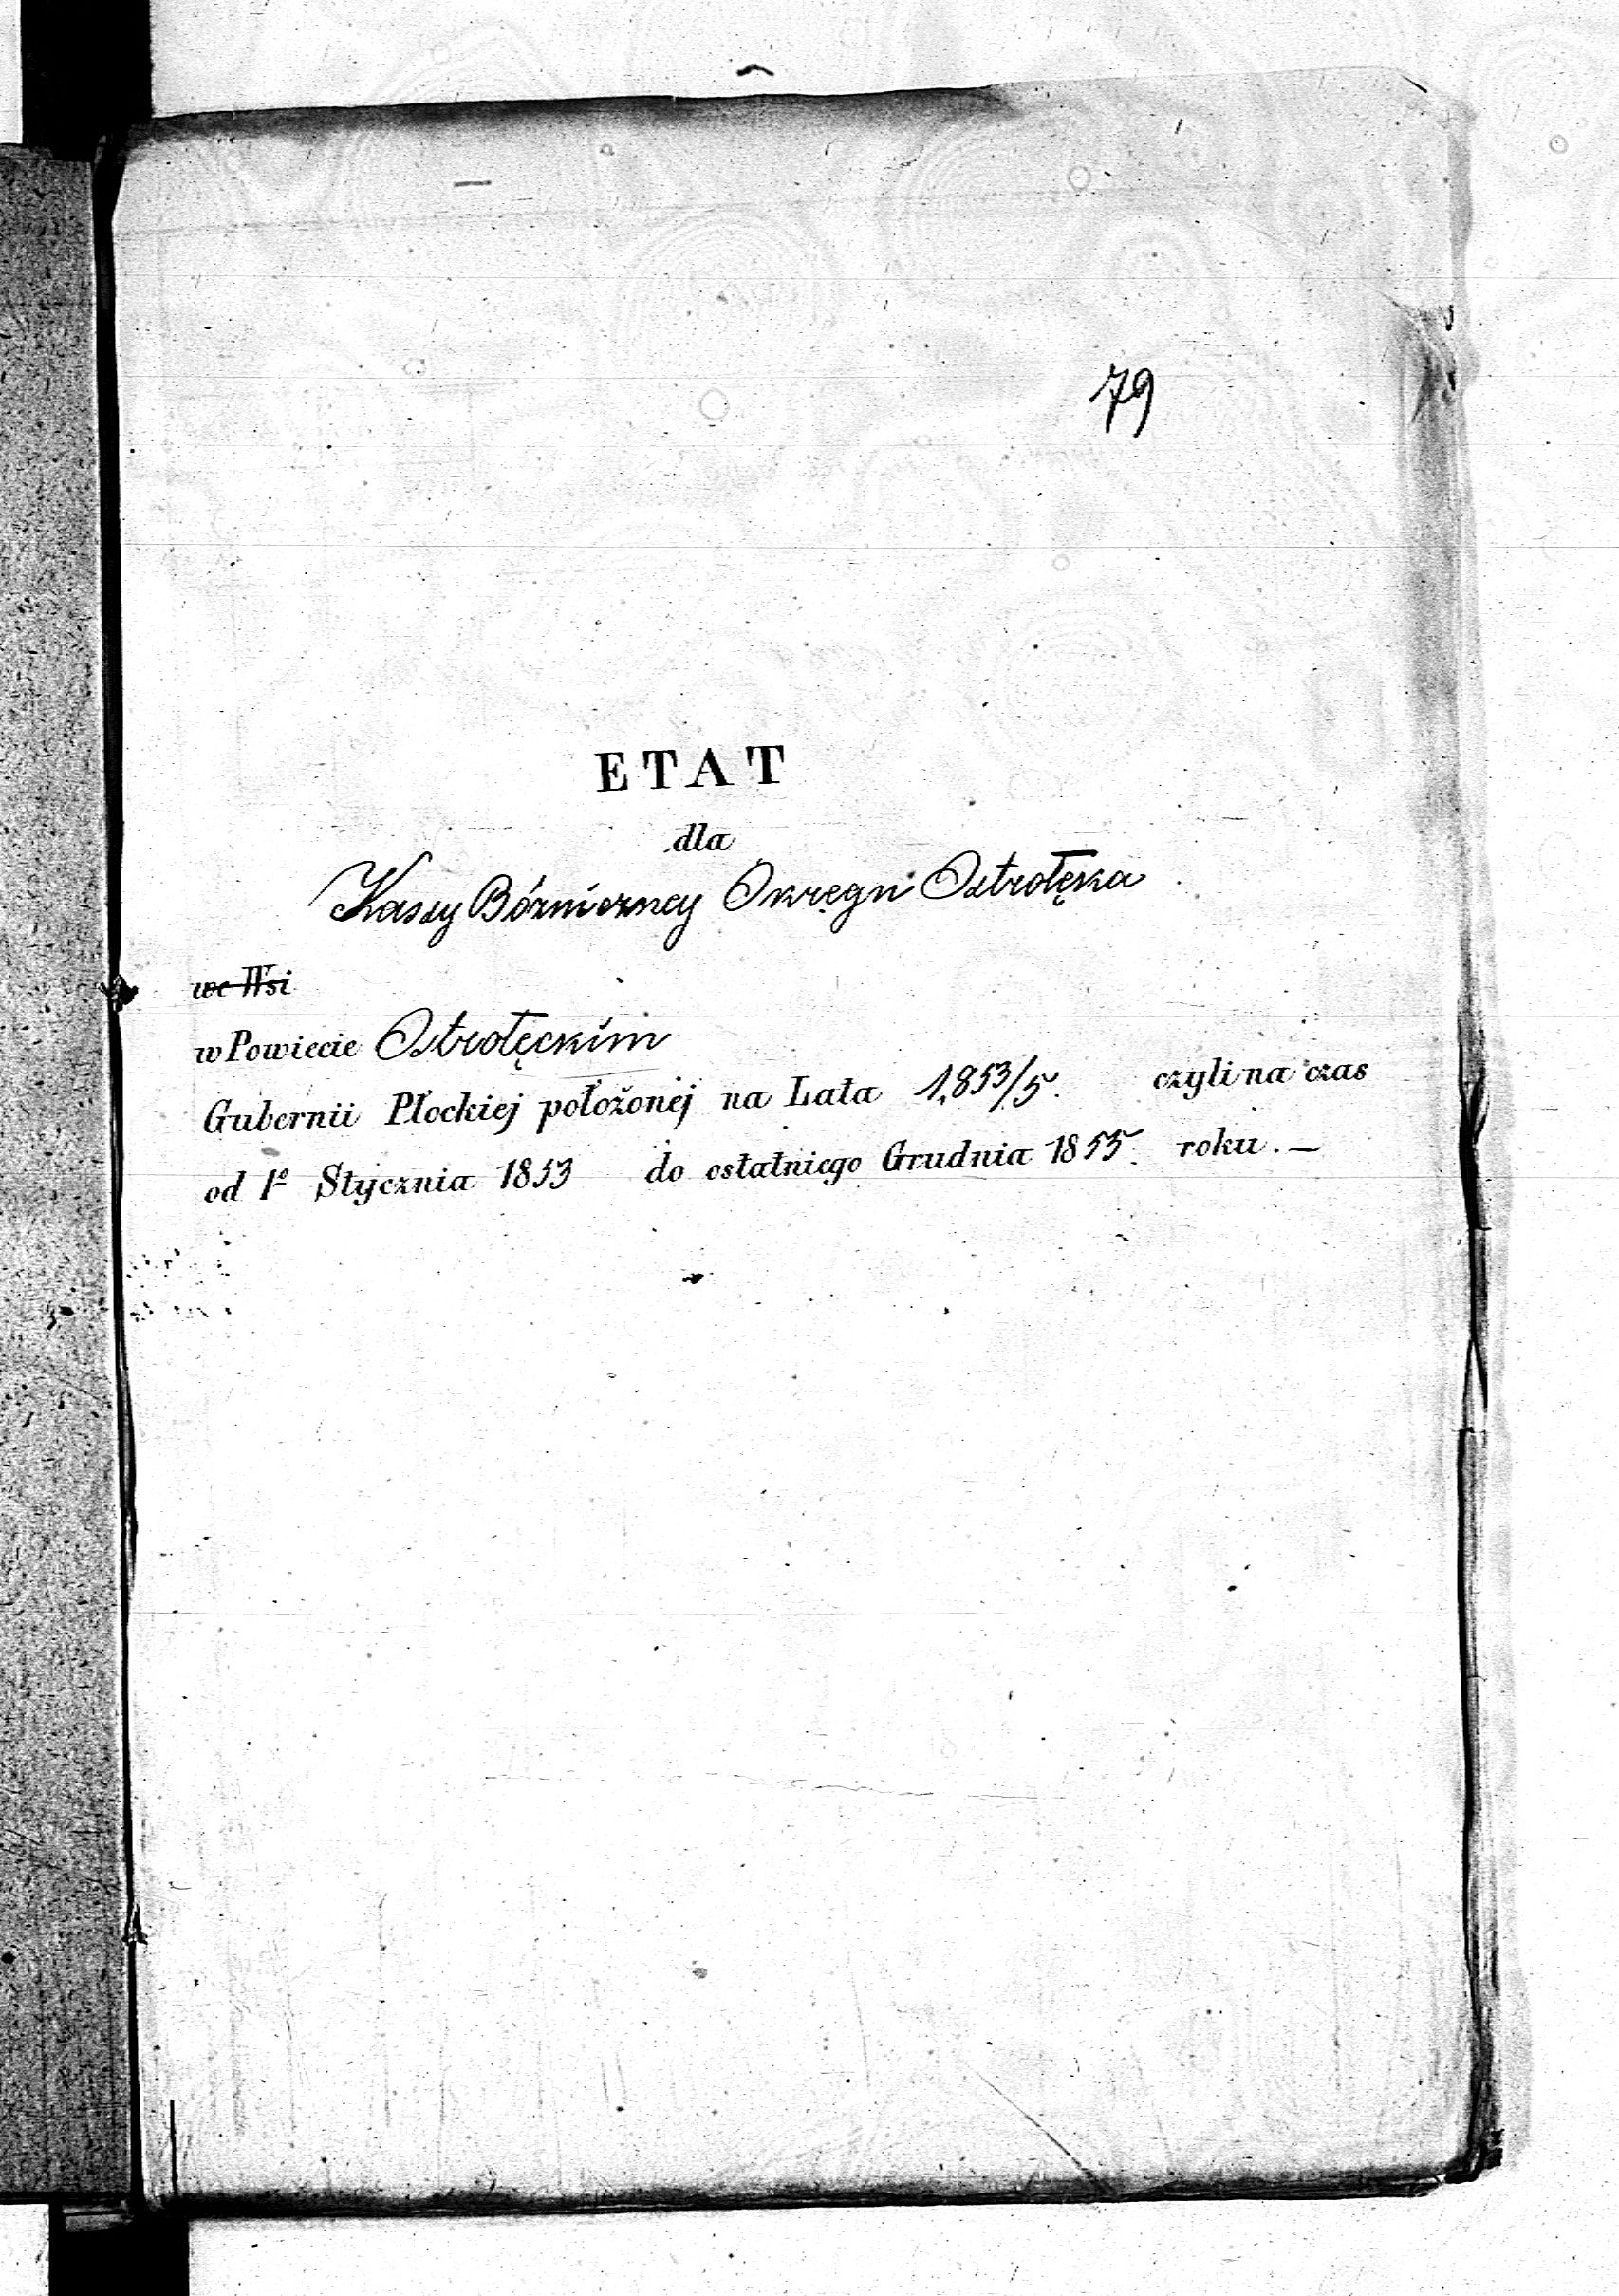 79
ETAT
dla
Kassy Bóżniczney Okręgu Ostrołęka
we Wsi
w Powiecie Ostrołęckim
Gubernii Płockiej położonéj na Lata 1853/5. czyli na czas
od 1º Stycznia 1853 do ostatniego Grudnia 1855. roku. —